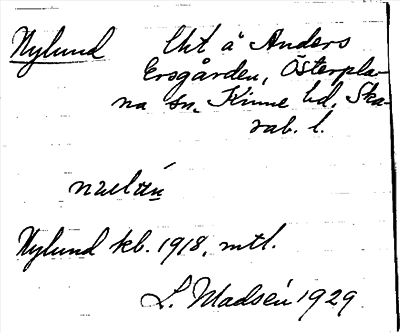 Nylund Uht å Anders
Ersgården, Österpla-
na sn, Kinne hd, Ska-
rab. l.
Nylund kb. 1918, mtl.
L. Madsén 1929